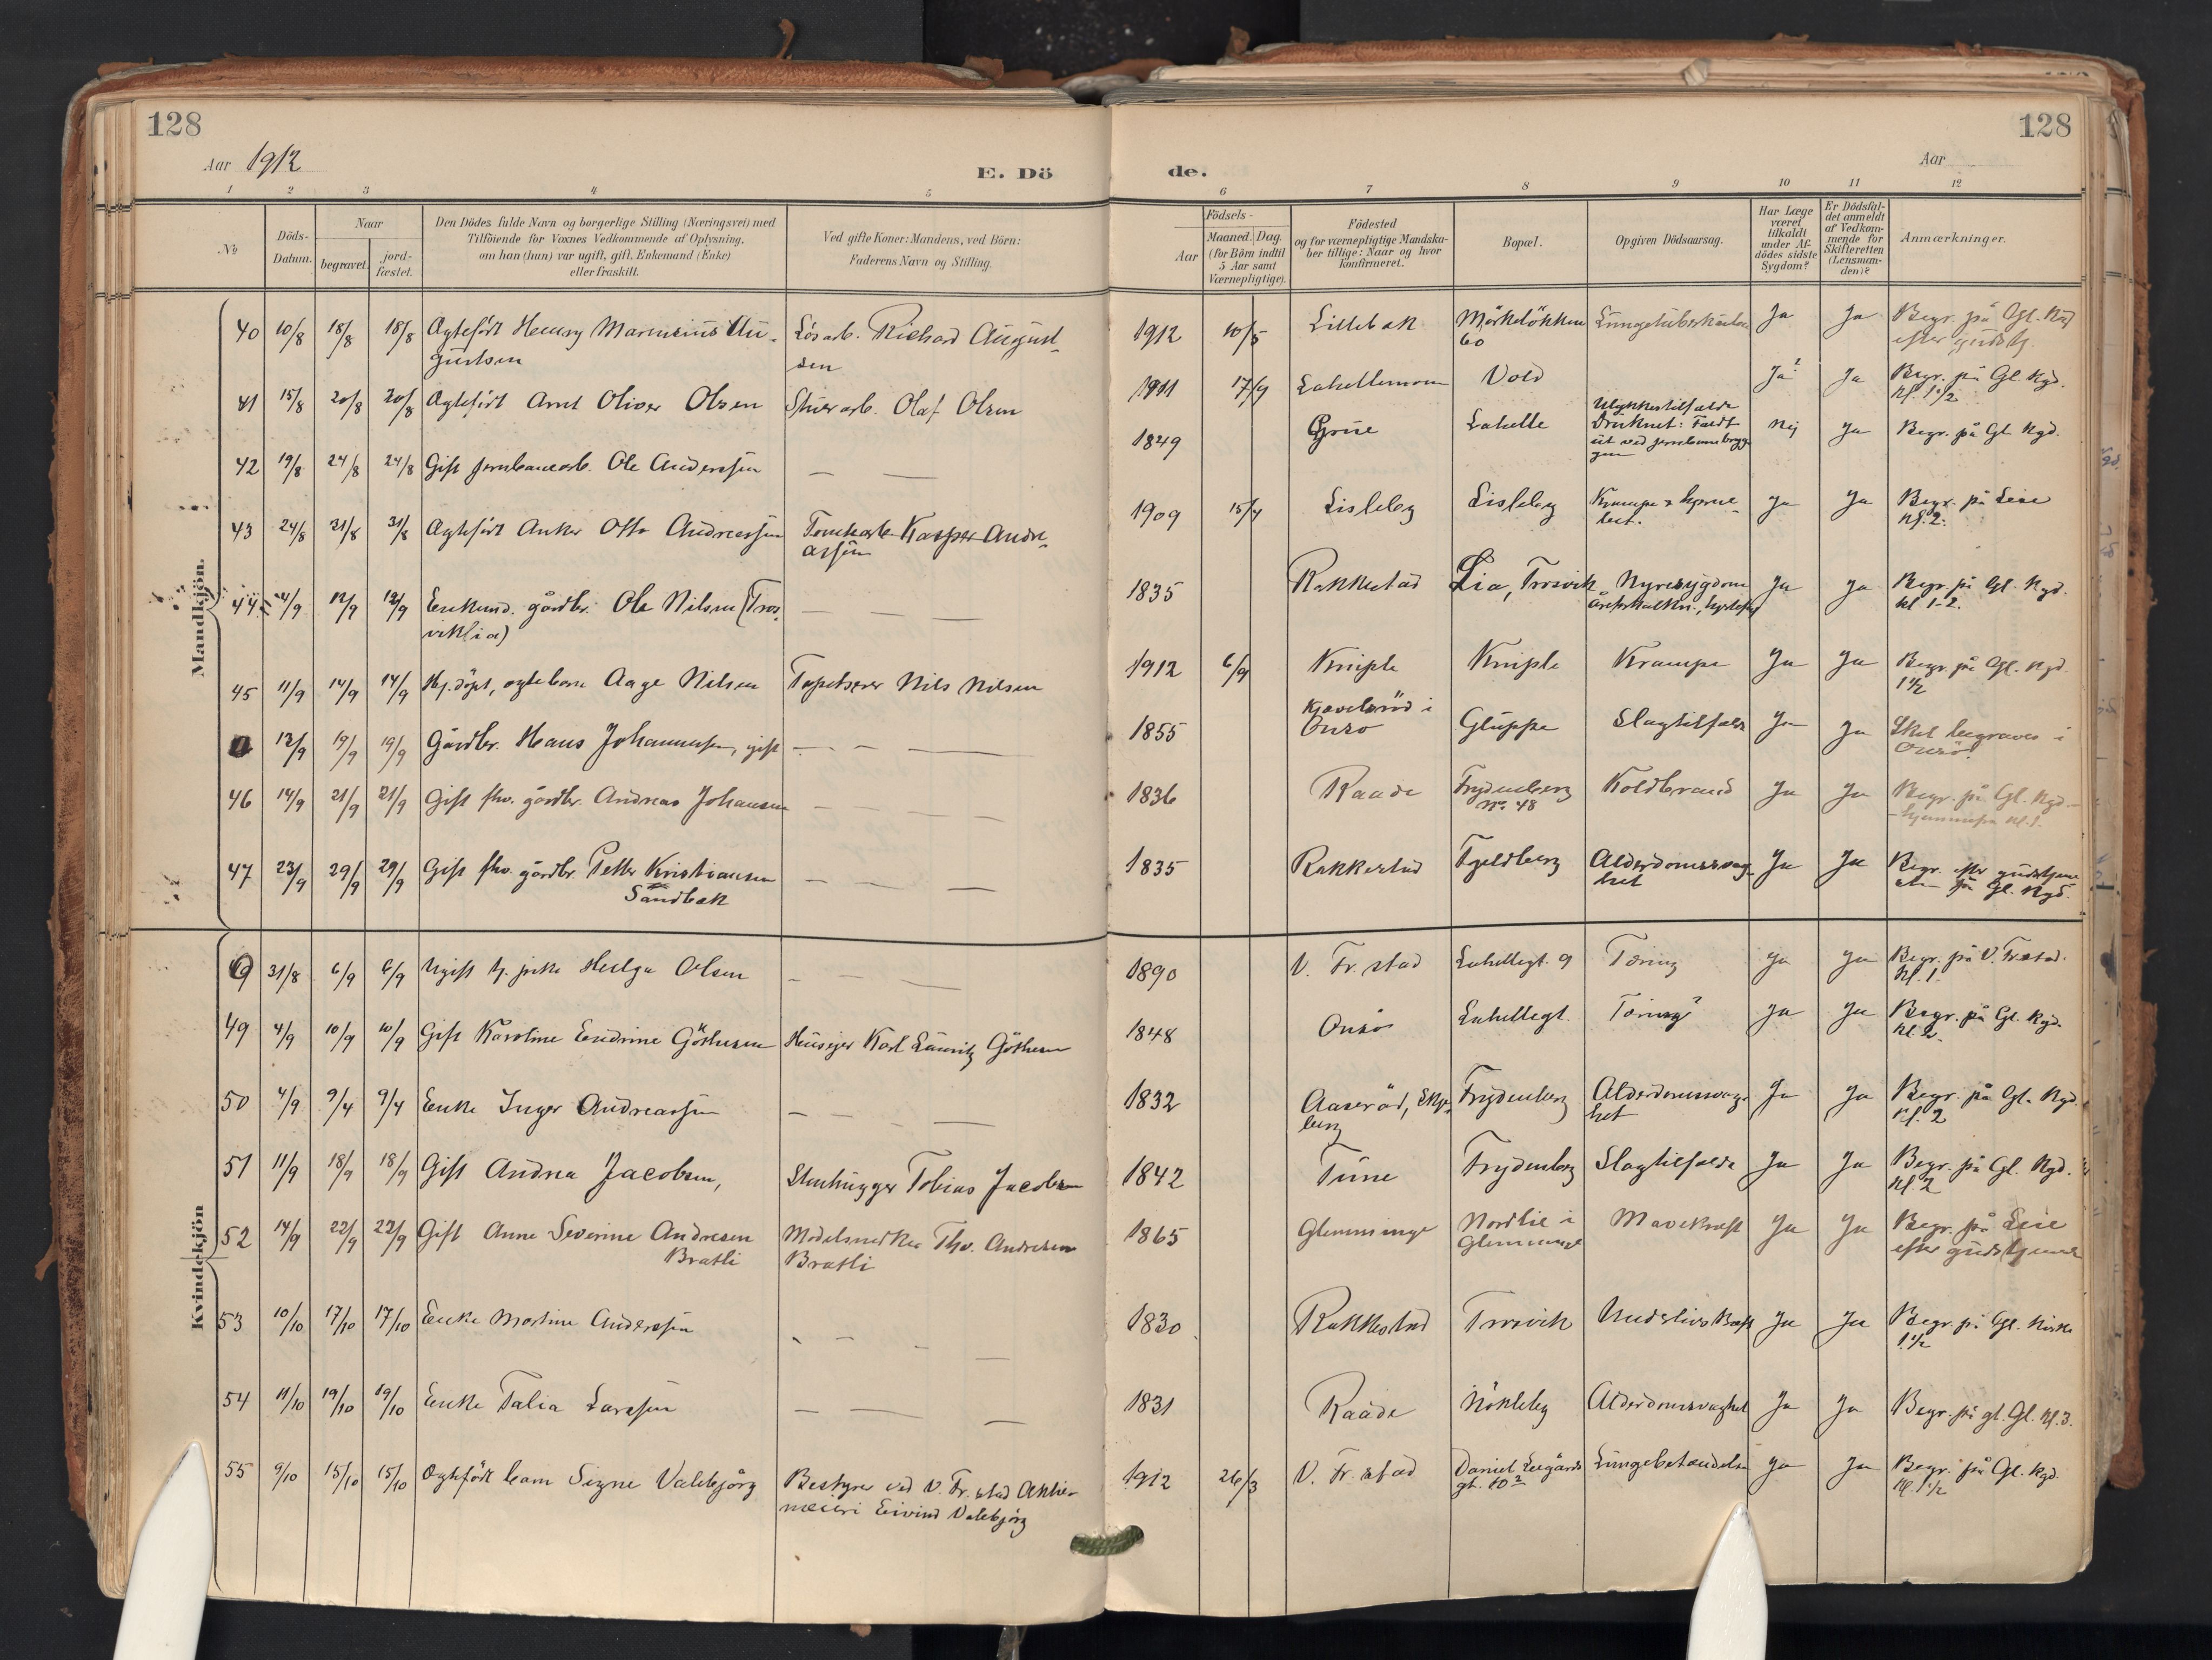 128
Aar 1912
E. Dö
de.
128
Aar
1 2 3 4 5 6 7 8 9 10 11 12
No
Döds-
Datum.
Naar
begravet.
jord-
fæstet.
Den Dödes fulde Navn og borgerlige Stilling (Næringsvei) med
Tilföiende for Voxnes Vedkommende af Oplysning,
om han (hun) var ugift, gift, Enkemand (Enke)
eller fraskilt.
Ved gifte Koner: Mandens, ved Börn:
Faderens Navn og Stilling.
Födsels-
Aar
Maaned. Dag.
(for Börn indtil
5 Aar samt
Værnepligtige).
Födested
og for værnepligtige Mandska-
ber tillige: Naar og hvor
konfirmeret.
Bopæl.
Opgiven Dödsaarsag.
Har Læge
været
tilkaldt
under Af-
dödes sidste
Sygdom?
Er Dödsfal-
det anmeldt
af Vedkom-
mende for
Skifteretten
(Lensman-
den)?
Anmærkninger.
Mandkjön.
40 10/8 18/8 18/8 Ægtefödt Henry Marensius Au-
gustsen
Lösarb. Richard August-
sen
1912 10/5 Lillebæk Mörkelökken
60
Lungetuberkulose Ja Ja Begr. på Gl. Kgd
efter gudstj.
41 15/8 20/8 20/8 Ægtefödt Arnt Oliver Olsen Stuerarb. Olaf Olsen
1911 17/9 Lahellemoen Vold Ja? Ja Begr. på Gl. Kgd.
Kl. 1 1/2
42 19/8 24/8 24/8 Gift jernbanearb. Ole Anderssen — —
1849 Grue Lahelle Ulykkestilfælde
Druknet: Faldt
ut ved jernbanebryg-
gen
Nej Ja Begr. på Gl Kgd.
43 24/8 31/8 31/8 Ægtefödt Anker Otto Andreassen Tomtearb. Kasper Andre-
assen
1909 15/4 Lisleby Lisleby Krampe & hjerne-
bet.
Ja Ja Begr. på Leie
Kl. 2.
44 4/9 12/9 12/9 Enkem. gårdbr. Ole Nilsen (Tros-
viklia)
— —
1835 Rakkestad Lia, Trosvik Nyresygdom
åreforkalkn., hjertefeil
Ja Ja Begr. på Gl. Kgd.
kl 1-2.
45 11/9 14/9 14/9 Hj.döpt, ægtebarn Aage Nilsen Tapetserer Nils Nilsen
1912 6/9 Kniple Kniple Krampe Ja Ja Begr. på Gl. Kgd.
1 1/2
13/9 19/9 19/9 Gårdbr. Hans Johannessen, gift — — —
1855 Kjæveland i
Onsö
Gluppe Slagtilfælde Ja Ja Skal begraves i
Onsö!
46 14/9 21/9 21/9 Gift fhv. gårdbr. Andreas Johansen — — —
1836 Raade Frydenberg
No. 48
Koldbrand Ja Ja Begr. på Gl. Kgd. -
hjemmefra kl. 1.
47 23/9 29/9 29/9 Gift fhv. gårdbr. Petter Kristiansen
Sandbæk
— — —
1835 Rakkestad Fjeldberg Alderdomssvag-
het
Ja Ja Begr. efter gudstjene-
sten på Gl. Kgd.
Kvindekjön
31/8 6/9 6/9 Ugift tj.pike Helga Olsen — — —
1890 V. Fr.stad Lahellegt. 9 Tæring Ja Ja Begr. på V. Frstad.
Kl. 1.
49 4/9 10/9 10/9 Gift Karoline Endrine Göthesen Huseier Karl Lauritz Göthesen
1848 Onsö Lahellegt. Tæring? Ja Ja Begr. på Gl. Kgd.
Kl. 2.
50 4/9 9/4 9/4 Enke Inger Andreassen — — —
1832 Aaseröd, Skje-
berg
Frydenberg Alderdomssvag-
het
Ja Ja Begr. på Gl. Kgd.
Kl. 2
51 11/9 18/9 18/9 Gift Andrea Jacobsen, Stenhugger Tobias Jacobsen
1842 Tune Frydenberg Slagtilfælde Ja Ja Begr. på Gl. Kgd.
Kl. 2
52 14/9 22/9 22/9 Gift Anne Severine Andresen
Bratli
Modelsnedker Thv. Andresen
Bratli
1865 Glemminge Nordlie i
Glemminge
Mavekræft Ja Ja Begr. på Leie
efter gudstjeneste
53 10/10 17/10 17/10 Enke Martine Anderssen — — —
1830 Rakkestad Trosvik Underlivskræft Ja Ja Begr. på Gl. Kirke
1 1/2
54 11/10 19/10 19/10 Enke Talia Larssen — — —
1831 Raade Nökleby Alderdomssvaghet Ja Ja Begr. på gl. Gl. Kl. 3.
55 9/10 15/10 15/10 Ægtefödt barn Signe Valebjörg Bestyrer ved V. Fr.stad Aktie-
meieri Eivind Valebjörg
1912 26/3 V. Fr.stad Daniel Leegårds
gt. 10
Lungebetændelse Ja Ja Begr. på Gl. Kgd.
Kl. 1 1/2